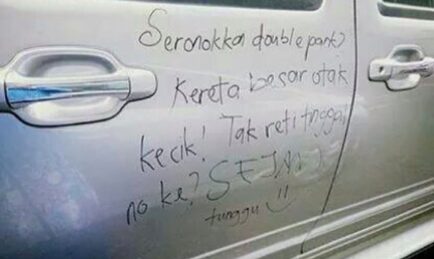 Seronokka double park?
Kereta besar otak
kecik! Tak reti tinggal
no ke? SEJAM
tunggu